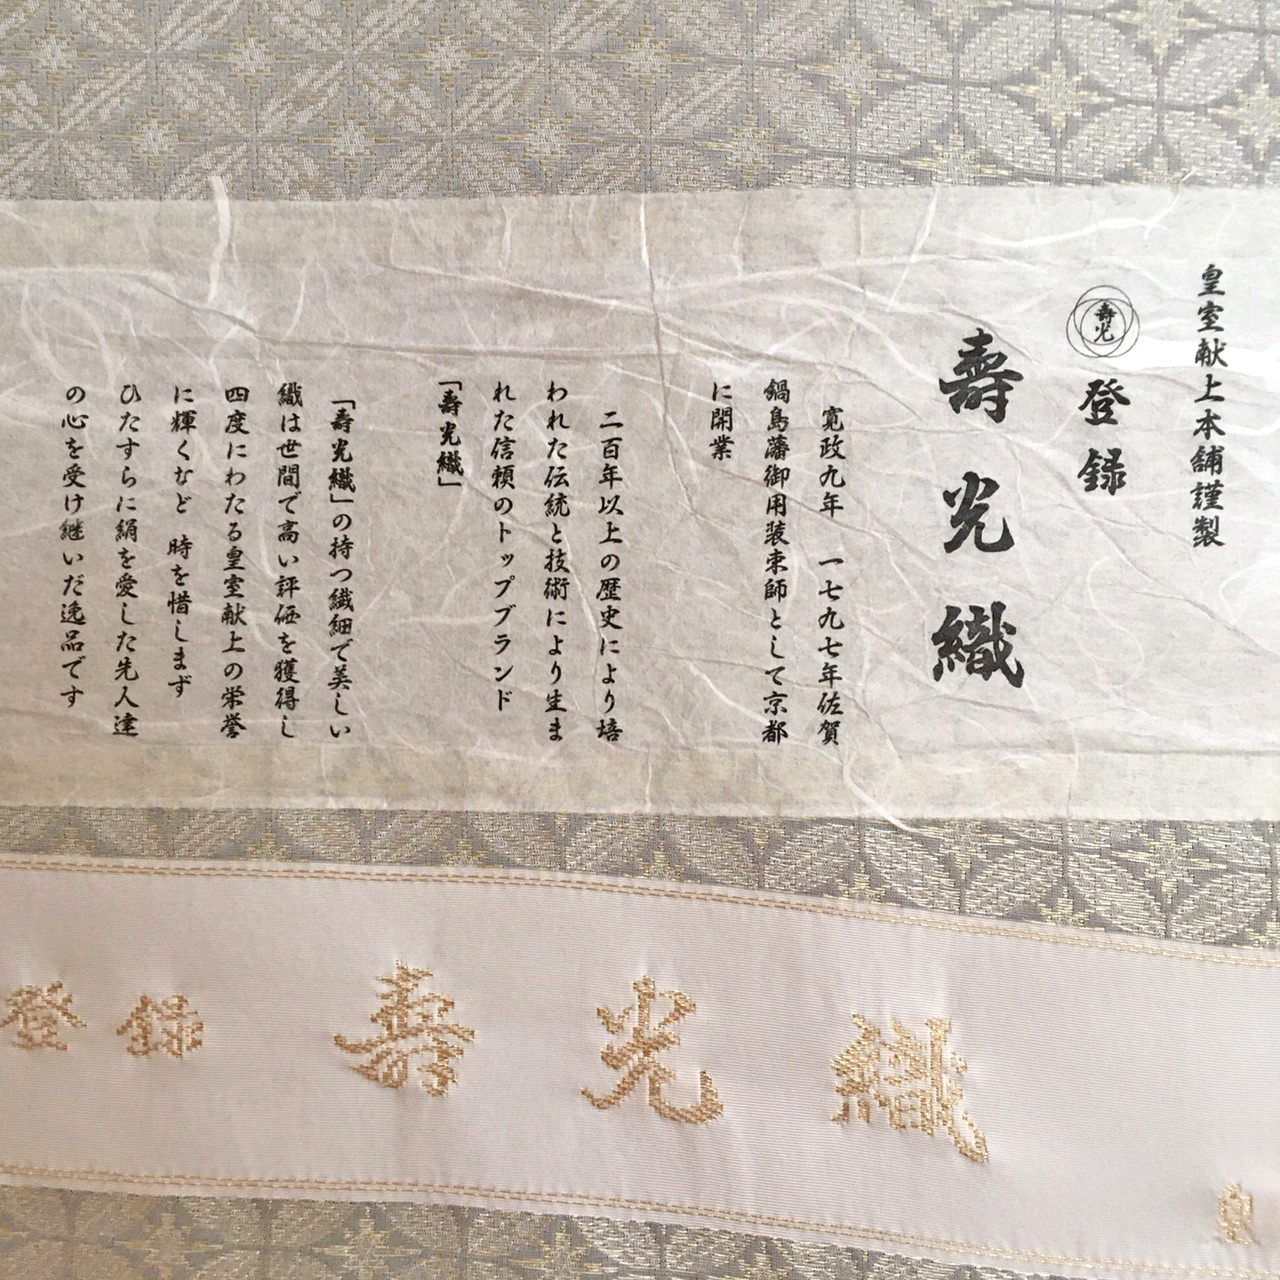 皇室献上本舗謹製
壽光
登録
壽光織
寛政九年 一七九七年佐賀
鍋島藩御用装束師として京都
に開業
二百年以上の歴史により培
われた伝統と技術により生ま
れた信頼のトップブランド
「壽光織」
「壽光織」の持つ繊細で美しい
織は世間で高い評価を獲得し
四度にわたる皇室献上の栄誉
に輝くなど 時を惜しまず
ひたすらに絹を愛した先人達
の心を受け継いだ逸品です
登録 壽光織
皇